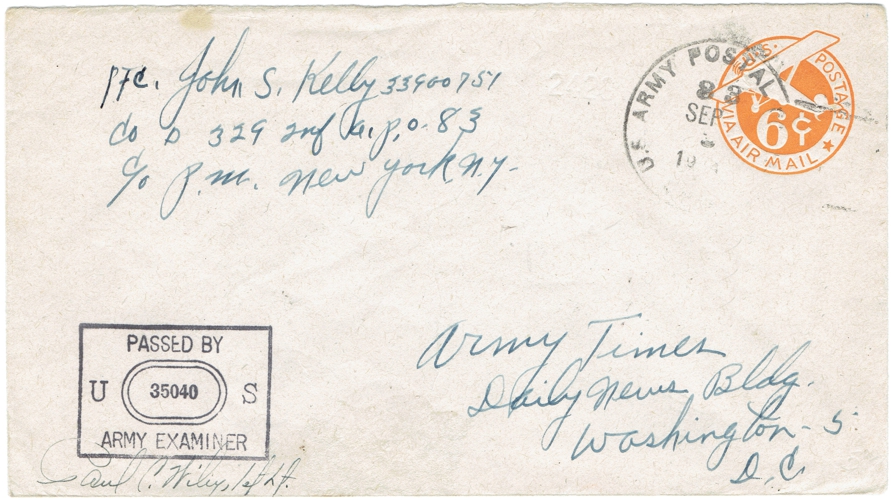 Pfc. John S. Kelly 33900751
Co D 329 Inf a.p.o. 83
c/o P.M. New York N.Y.
U.S. ARMY POSTAL
83
SEP
19
U.S. POSTAGE
6¢
VIA AIR MAIL
PASSED BY
U 35040 S
ARMY EXAMINER
Army Times
Daily News Bldg.
Washington - 5
D.C.
Paul C. 1st Lt.